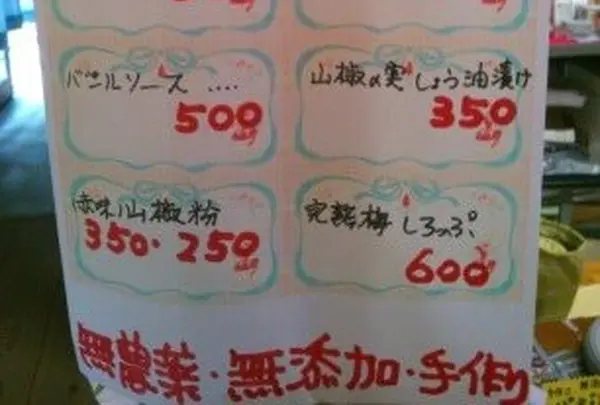 バジルソース ....
500
円
山椒の実しょう油漬け
350
円
山椒粉
350・250
円
完熟梅しろっぷ
600
円
無農薬・無添加・手作り